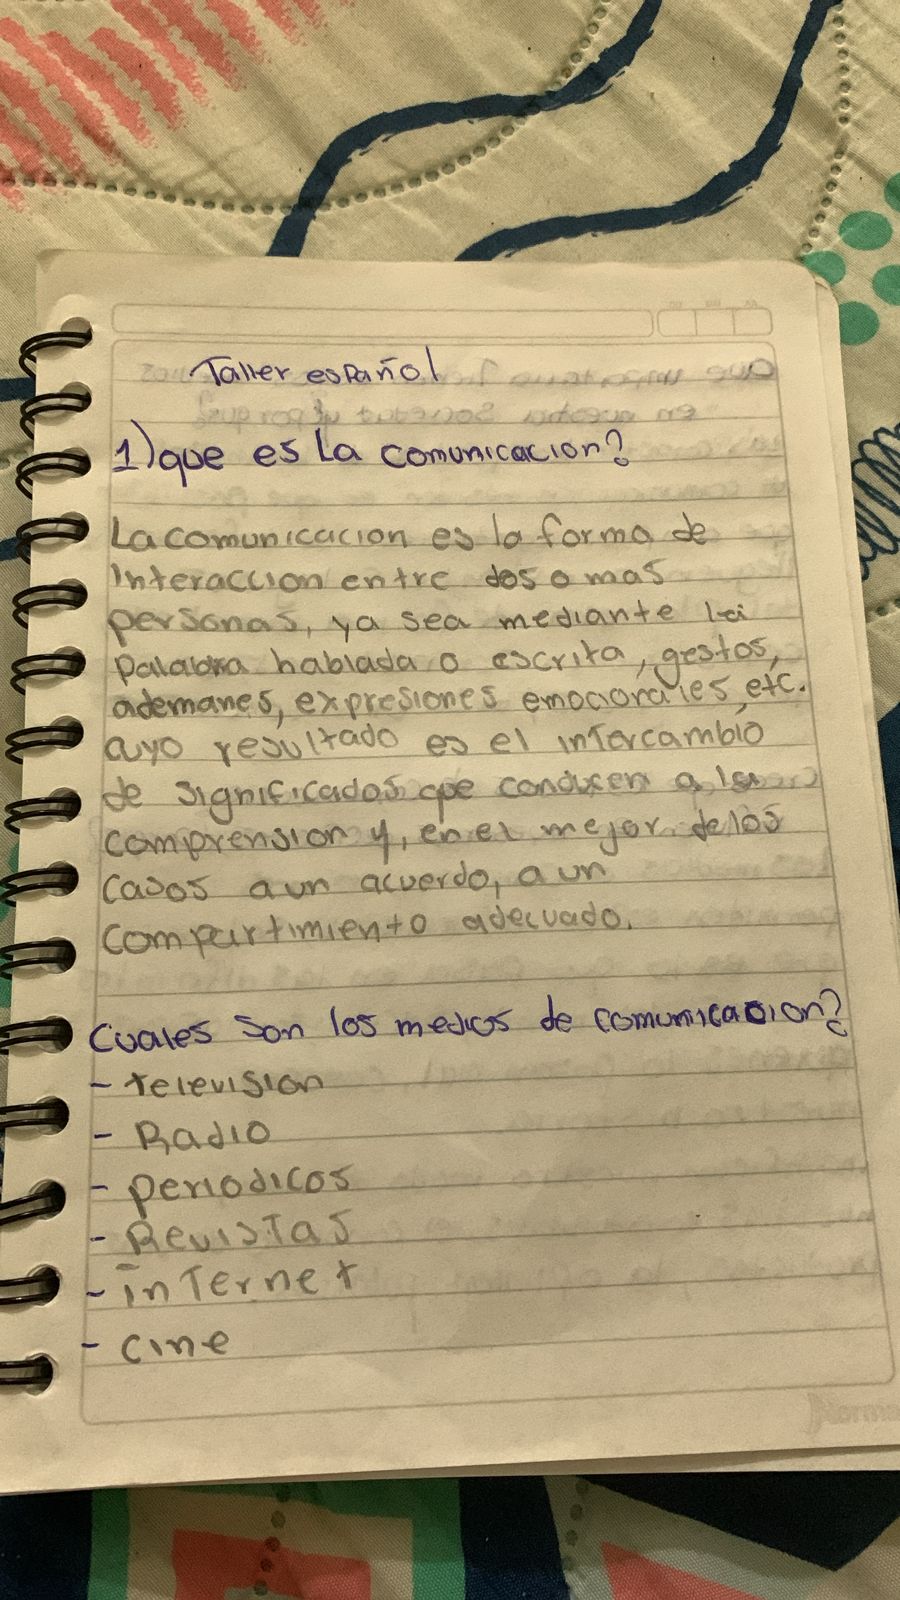 Taller español
1) que es La comunicacion?
La comunicacion es la forma de
interaccion entre dos o mas
personas, ya sea mediante la
palabra hablada o escrita, gestos,
ademanes, expresiones emocionales, etc.
cuyo resultado es el intercambio
de significados que conducen a la
comprension y, en el mejor de los
casos a un acuerdo, a un
compartimiento adecuado.
Cuales son los medios de comunicacion?
- television
- Radio
- periodicos
- Revistas
- internet
- cine
Norma